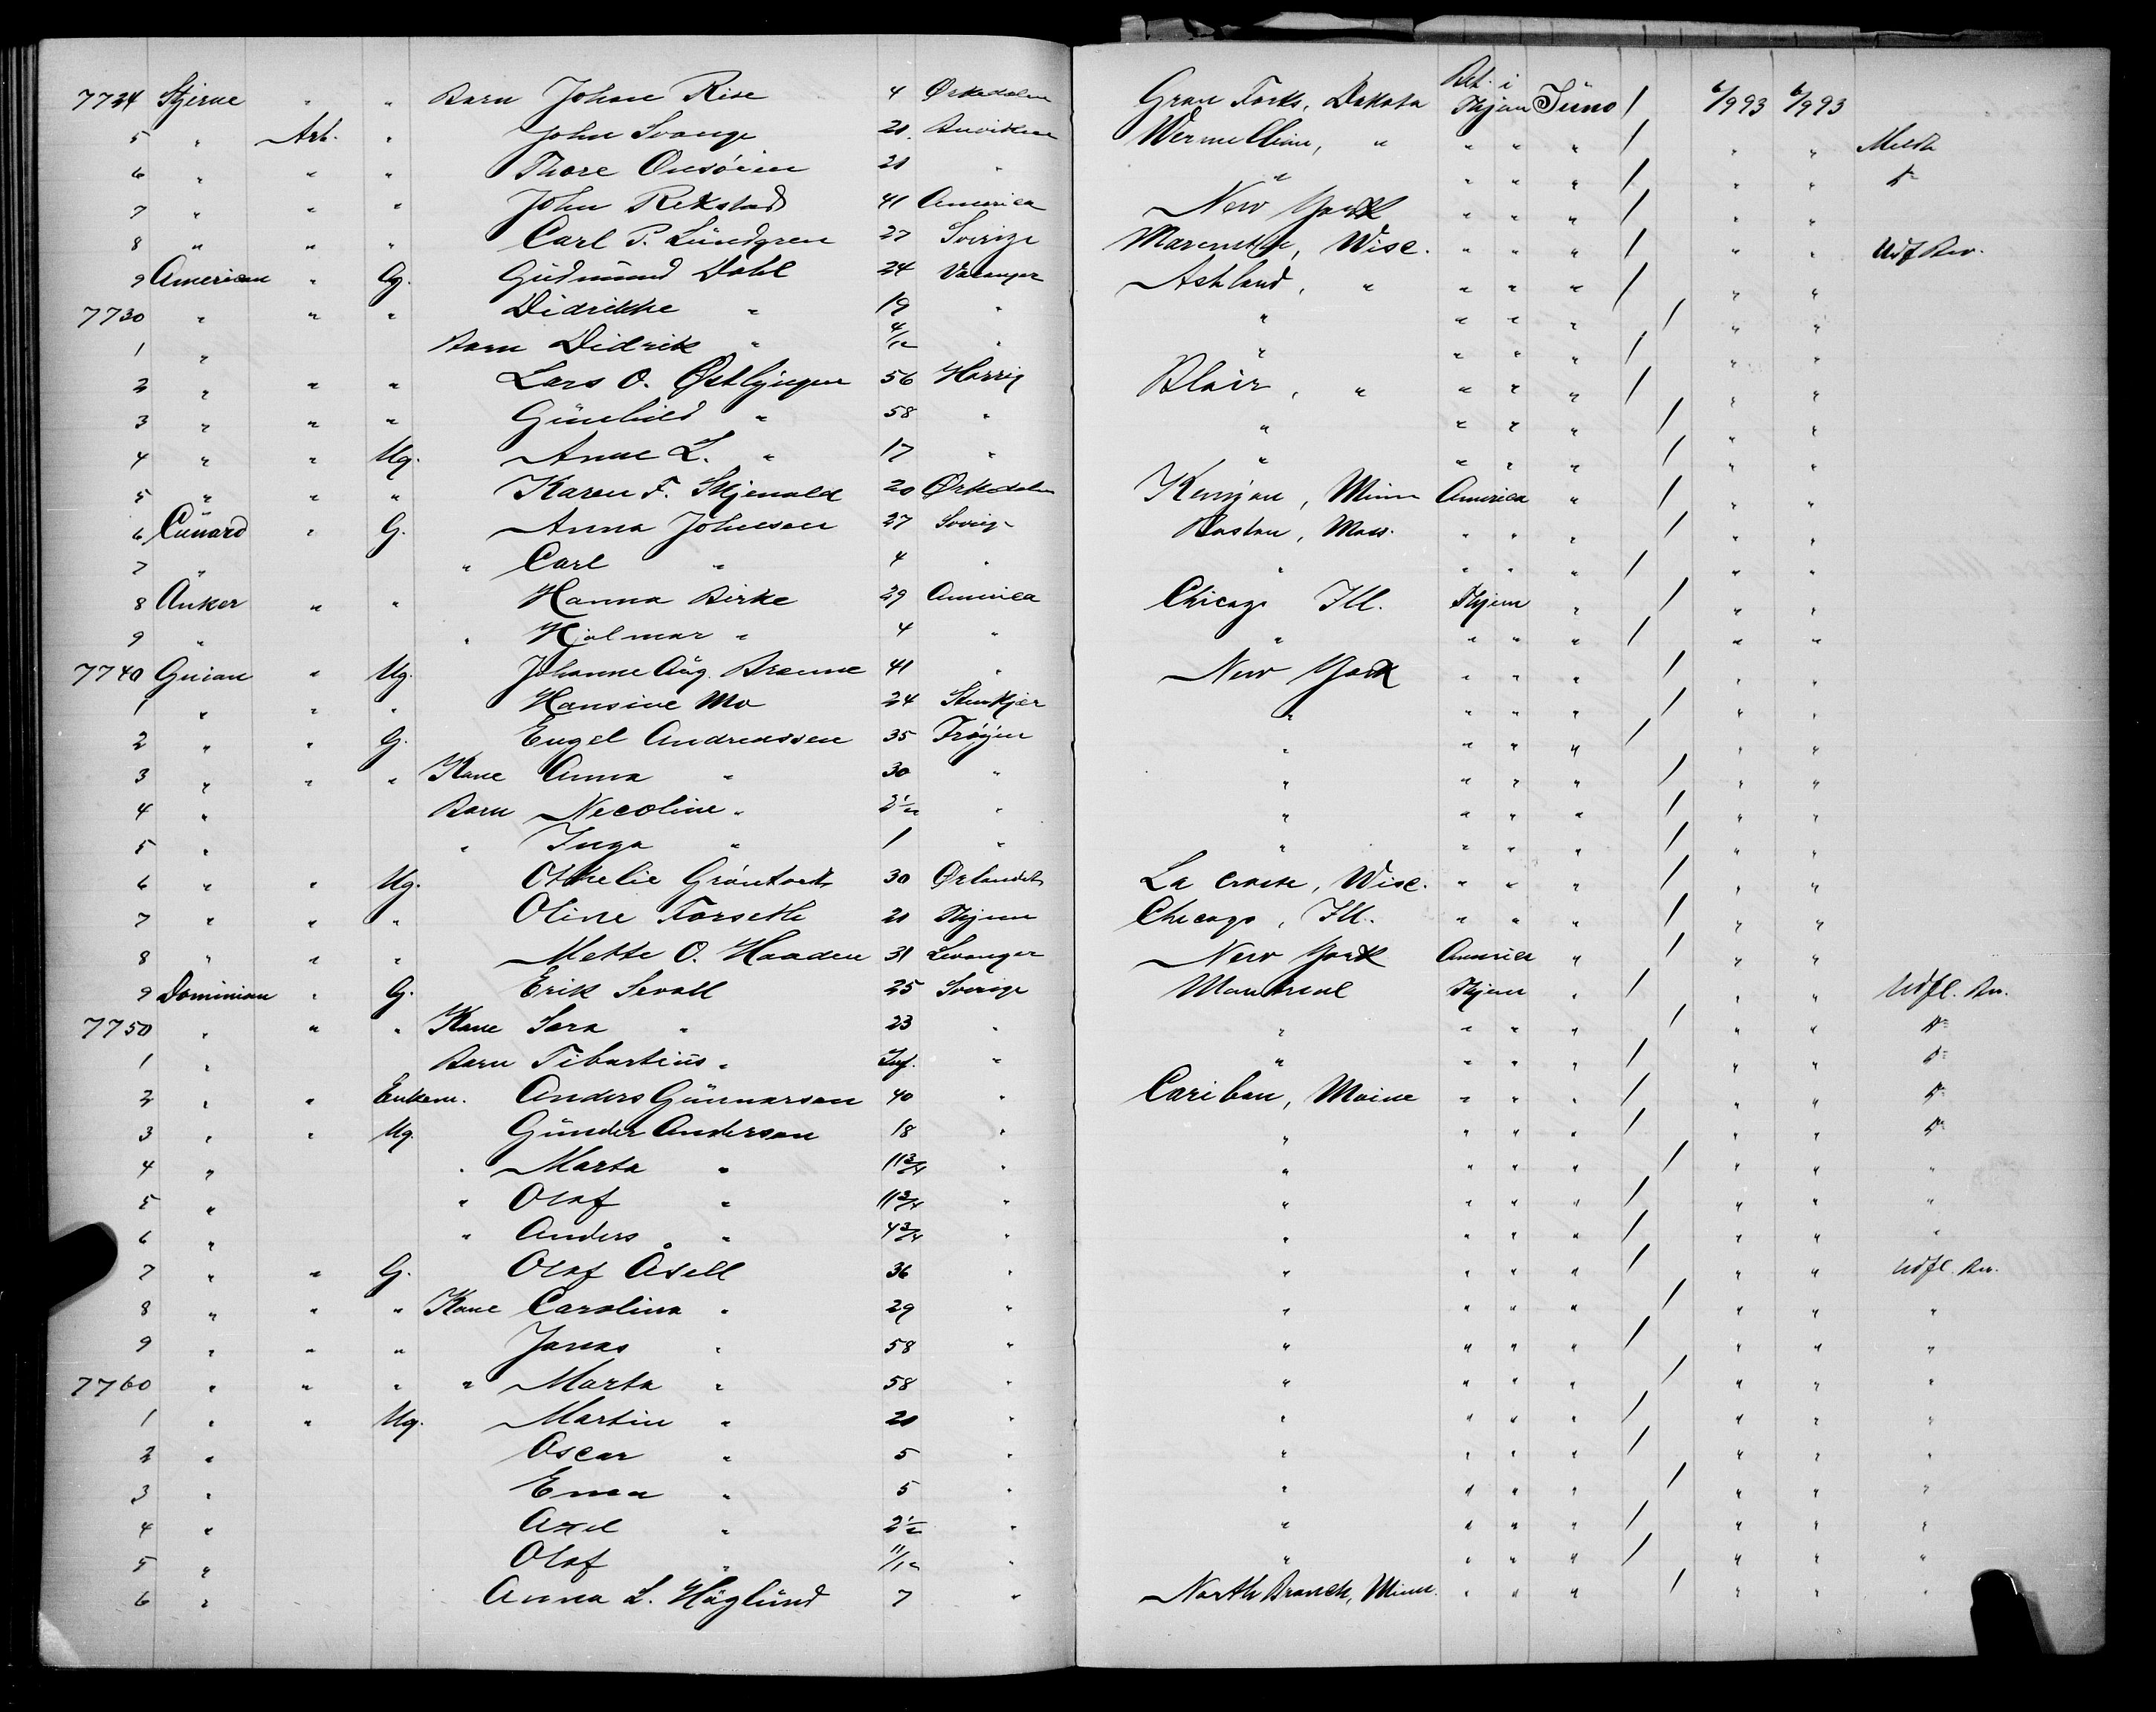 7724 Stjerne " " Barn Johan Rise 4 Ørkedalen Gran Forks, Dakota Bet. i Thjem Juno / 6/9 93 6/9 93
5 " Arb. " John Svange 21 Werme " " " " / " " Meldt
6 " " " Thore 21 " " " " " / " " do
7 " " " John Rekstad 41 America New York " " " / " "
8 " " " Carl P. Lundgren 27 Sverige Wisc. " " " / " " Udf Bev.
9 American " G. Gudmund Dahl 24 Varanger Ashland, " " " " / " "
7730 " " " Didrikke " 19 " " " " " / " "
1 " Barn Didrik " 4/12 " " " " " / " "
2 " " " Lars O. Østbyngen 56 Blair, " " " " / " "
3 " " " Gunhild " 58 " " " " " / " "
4 " " Ug. Anne L. " 17 " " " " " / " "
5 " " " Karen F. Skjenald 20 Ørkedalen Kenyon, Minn America " / " "
6 Cunard " G. Anna Johnson 27 Sverig Boston, Mass. " " " / " "
7 " " Carl " 4 " " " " " / " "
8 Anker " " Hanna Birke 29 America Chicago Ill. Thjem " / " "
9 " " Hjalmar " 4 " " " " " / " "
7740 Guion " Ug. Johanne Aug. Brenne 41 " New York " " " / " "
1 " " " Hansine Mo 24 Stenkjær " " " " / " "
2 " " G. Engel Andreassen 35 Frøyen " " " " / " "
3 " " " Kone Anna " 30 " " " " " / " "
4 " Barn Necoline " 2½ " " " " " / " "
5 " " Inga " 1 " " " " " / " "
6 " " Ug. Othelie 30 Ørlandet La Crosse, Wisc. " " " / " "
7 " " " Oline Forseth 21 Thjem Chicago, Ill. " " " / " "
8 " " " Mette O. Haaden 31 Levanger New York America " / " "
9 Dominion " G. Erik Sevall 25 Sverige Montreal Thjem " / " " Udfl. Bev.
7750 " " " Kone Sara " 23 " " " " " / " " do
1 " Barn Tibertius " Inf. " " " " " / " " do
2 " " Enkem. Anders Gunnarson 40 " Caribou, Maine " " " / " " do
3 " " Ug. Gunder Anderson 18 " " " " " / " " do
4 " " Marta " 11¾ " " " " " / " " "
5 " " Olof " 11¾ " " " " " / " " "
6 " " Anders " 4¾ " " " " " / " " "
7 " " G. Olof Åsell 36 " " " " " / " " Udfl. Bev.
8 " " " Kone Carolina " 29 " " " " " / " " "
9 " " " Jonas " 58 " " " " " / " " "
7760 " " " " Marta " 58 " " " " " / " " "
1 " " Ug. Martin " 21 " " " " " / " " "
2 " Oscar " 5 " " " " " / " " "
3 " Erica " 5 " " " " " / " " "
4 " Axel " 2½ " " " " " / " " "
5 " Olof " 11/12 " " " " " / " " "
6 " Anna L. Höglund 7 " North Branch, Minn. " " " / " " "